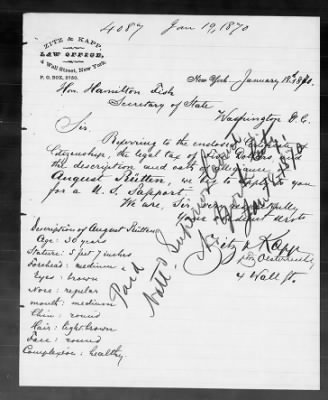 4087 Jan 19, 1870
ZITZ & KAPP,
LAW OFFICE,
4 Wall Street, New York
P. O. BOX,
New York January 18th 1870.
Hon. Hamilton Fish
Secretary of State
Washington D.C.
Sir.
Referring to the enclosed
Citizenship, the legal tax of five Dollars and
the description and oath of allegiance
August Rütten, we beg to apply to you
for a U. S. Passport.
We are, Sir, very respectfully
Your obedient
Zitz & Kapp
4 Wall St.
Description of August Rütten
Age: 30 years
Stature: 5 feet 7 inches
Forehead: medium
Eyes: brown
Nose: regular
mouth: medium
Chin: round
Hair: light brown
Face: round
Complexion: healthy
Paid
Jan 19 1870